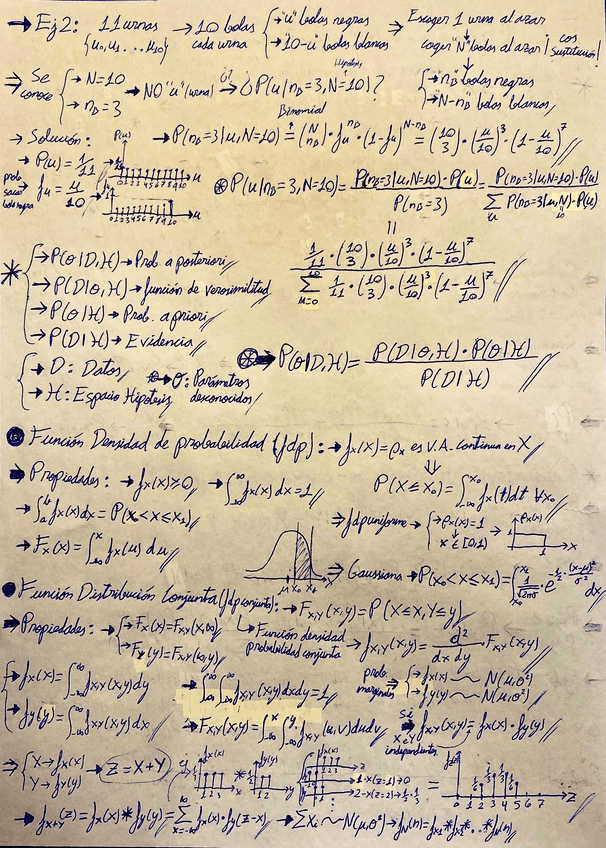 → Ej 2: 11 urnas {u₀, u₁ ... u₁₀} → 10 bolas cada urna { → "u" bolas negras → 10-u bolas blancas → Escoger 1 urna al azar ↓ coger "N" bolas al azar ¡con sustitución! ↓ { → n_B bolas negras → N-n_B bolas blancas
⇒ Se conoce { → N=10 → n_B=3 → NO "u" (urna) → ¿P(u|n_B=3, N=10)? Hipótesis
→ Solución: → P(n_B=3|u, N=10) = (N n_B) · f_u^{n_B} · (1-f_u)^{N-n_B} = (10 3) · (u/10)³ · (1-u/10)⁷ Binomial
→ P(u) = 1/11 → P(u) 0 1 2 3 4 5 6 7 8 9 10 u
prob sacar bola negra f_u = u/10 → 1 0 1 2 3 4 5 6 7 8 9 10 u
⊛ P(u|n_B=3, N=10) = P(n_B=3|u, N=10) · P(u) / P(n_B=3) = P(n_B=3|u, N=10) · P(u) / Σ_u P(n_B=3|u, N=10) · P(u)
= 1/11 · (10 3) · (u/10)³ · (1-u/10)⁷ / Σ_{u=0}^{10} 1/11 · (10 3) · (u/10)³ · (1-u/10)⁷
* { → P(θ|D,H) → Prob. a posteriori
→ P(D|θ,H) → función de verosimilitud
→ P(θ|H) → Prob. a priori
→ P(D|H) → Evidencia
{ → D: Datos → θ: Parámetros desconocidos
→ H: Espacio Hipótesis
⊛ → P(θ|D,H) = P(D|θ,H) · P(θ|H) / P(D|H)
Función Densidad de probabilidad (fdp): → f_X(x) = ρ_x es V.A. continua en X
⇒ Propiedades: → f_X(x) ≥ 0 → ∫_{-∞}^{∞} f_X(x)dx = 1 P(X ≤ X₀) = ∫_{-∞}^{x₀} f_X(t)dt ∀x₀
→ ∫_a^b f_X(x)dx = P(x₀ < X ≤ x₁) ⇒ fdp uniforme → { → ρ_x(x) = 1 ↓ x ∈ [0,1] → ρ_x(x) 1 x
→ F_X(x) = ∫_{-∞}^{x} f_X(u) du
μ x₀ x₁ x ⇒ Gaussiana → P(x₀ < X ≤ x₁) = ∫_{x₀}^{x₁} 1/√(2πσ) · e^{-1/2 · (x-μ)²/σ²} dx
Función Distribución Conjunta (fdp conjunta): → F_{X,Y}(x,y) = P(X ≤ x, Y ≤ y)
→ Propiedades: → { → F_X(x) = F_{XY}(x,∞) → F_Y(y) = F_{XY}(∞,y) ↳ Función densidad probabilidad conjunta → f_{X,Y}(x,y) = d²/dx dy F_{X,Y}(x,y)
{ → f_X(x) = ∫_{-∞}^{∞} f_{XY}(x,y)dy → ∫_{-∞}^{∞} ∫_{-∞}^{∞} f_{XY}(x,y)dxdy = 1 prob. marginales { → f_X(x) ~ N(μ,σ²) → f_Y(y) ~ N(μ,σ²)
→ f_Y(y) = ∫_{-∞}^{∞} f_{XY}(x,y)dx → F_{XY}(x,y) = ∫_{-∞}^{x} ∫_{-∞}^{y} f_{XY}(u,v)dudv si X e Y independientes → f_{XY}(x,y) = f_X(x) · f_Y(y)
⇒ { X → f_X(x) Y → f_Y(y) → Z = X+Y f_X(x) 1 2 3 x * f_Y(y) 1 2 1-x(z=1) → 0 = 0 1 2 3 4 5 6 7 z
→ f_{X+Y}(z) = f_X(x) * f_Y(y) = Σ_{x=-∞}^{∞} f_X(x) · f_Y(z-x) → ΣX_i ~ N(μ,σ²) → f_N(n) = f_{X1} * f_{X2} * ... * f_N(n)